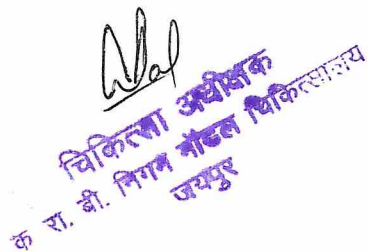 चिकित्सा अधीक्षक
क रा. बी. निगम मॉडल चिकित्सालय
जयपुर